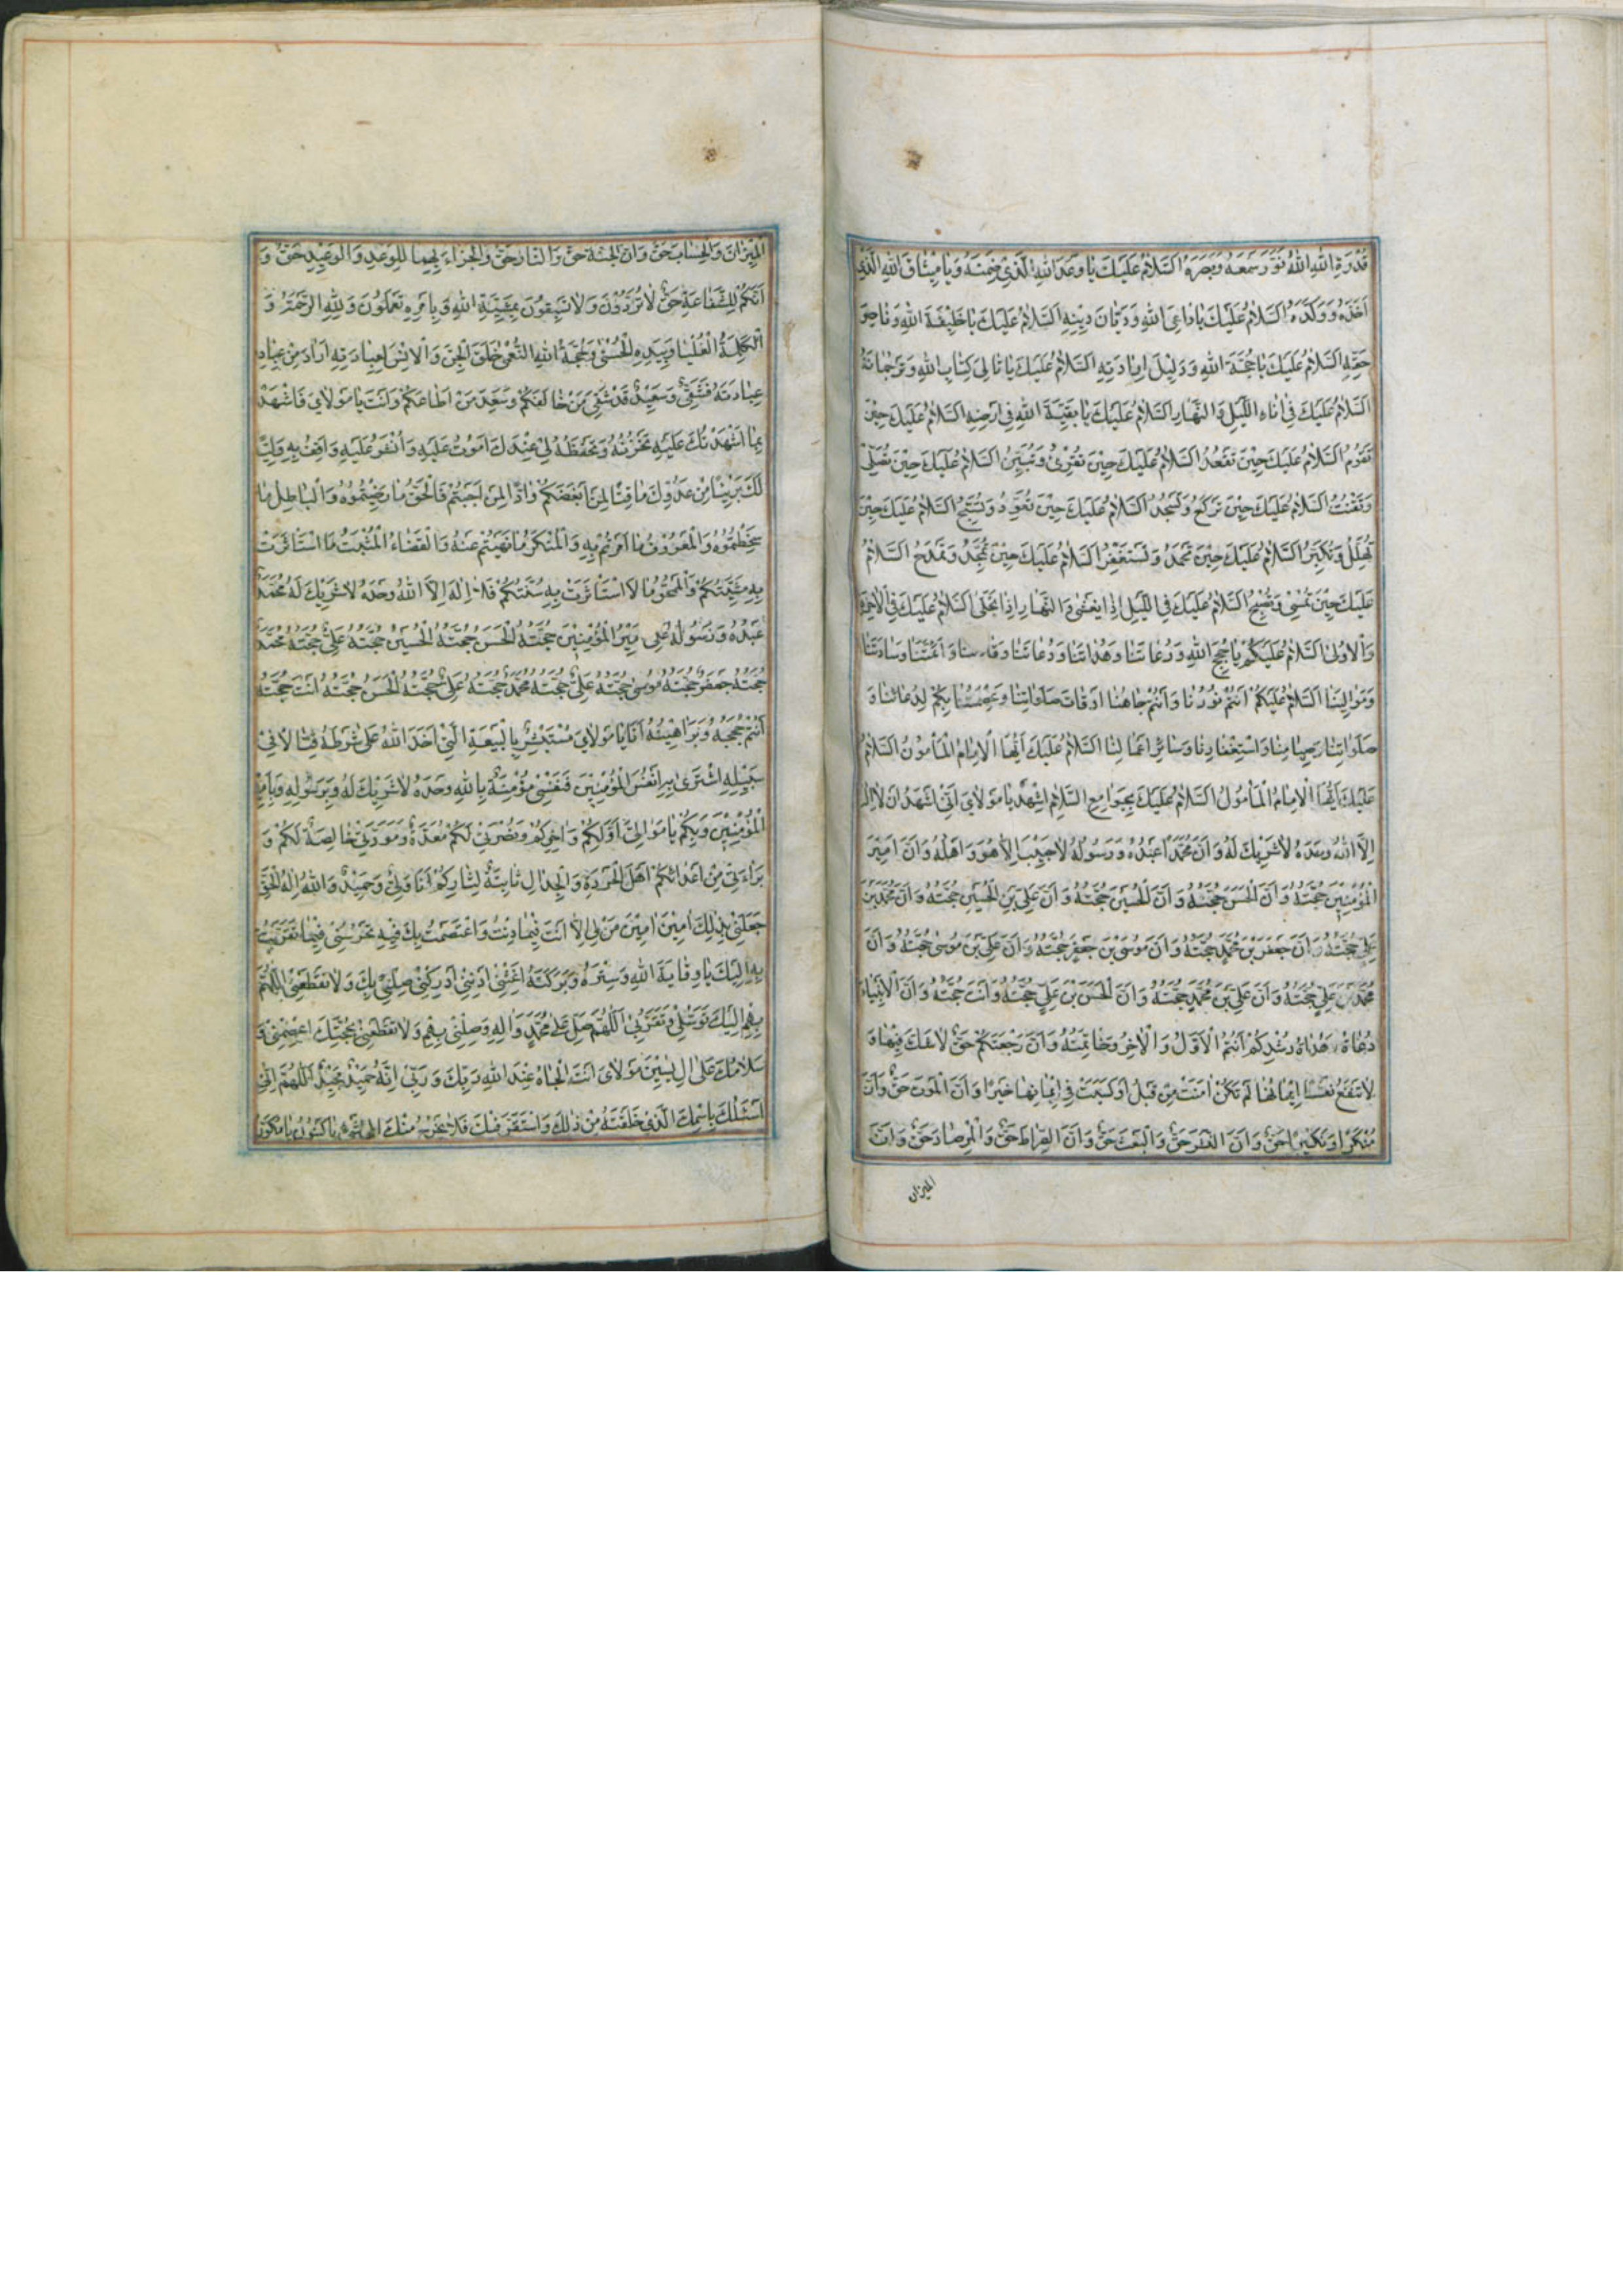 قُدْرَةِ اللهِ اللهُ نَوَّرَ سَمْعَهُ وَبَصَرَهُ اَلسَّلَامُ عَلَيْكَ يَا وَعْدَ اللهِ الَّذِي ضَمِنَهُ وَيَا مِيثَاقَ اللهِ الَّذِي
اَخَذَهُ وَوَكَّدَهُ اَلسَّلَامُ عَلَيْكَ يَا دَاعِيَ اللهِ وَدَيَّانَ دِينِهِ اَلسَّلَامُ عَلَيْكَ يَا خَلِيفَةَ اللهِ وَنَاصِرَ
حَقِّهِ اَلسَّلَامُ عَلَيْكَ يَا حُجَّةَ اللهِ وَدَلِيلَ اِرَادَتِهِ اَلسَّلَامُ عَلَيْكَ يَا تَالِيَ كِتَابِ اللهِ وَتَرْجُمَانَهُ
اَلسَّلَامُ عَلَيْكَ فِي اٰنَاءِ اللَّيْلِ وَالنَّهَارِ اَلسَّلَامُ عَلَيْكَ يَا بَقِيَّةَ اللهِ فِي اَرْضِهِ اَلسَّلَامُ عَلَيْكَ حِينَ
تَقُومُ اَلسَّلَامُ عَلَيْكَ حِينَ تَقْعُدُ اَلسَّلَامُ عَلَيْكَ حِينَ تَقْرَئُ وَتُبَيِّنُ اَلسَّلَامُ عَلَيْكَ حِينَ تُصَلِّي
وَتَقْنُتُ اَلسَّلَامُ عَلَيْكَ حِينَ تَرْكَعُ وَتَسْجُدُ اَلسَّلَامُ عَلَيْكَ حِينَ تُعَوِّذُ وَتُسَبِّحُ اَلسَّلَامُ عَلَيْكَ حِينَ
تُهَلِّلُ وَتُكَبِّرُ اَلسَّلَامُ عَلَيْكَ حِينَ تَحْمَدُ وَتَسْتَغْفِرُ اَلسَّلَامُ عَلَيْكَ حِينَ تُمَجِّدُ وَتَمْدَحُ اَلسَّلَامُ
عَلَيْكَ حِينَ تُمْسِي وَتُصْبِحُ اَلسَّلَامُ عَلَيْكَ فِي اللَّيْلِ اِذَا يَغْشَى وَالنَّهَارِ اِذَا تَجَلَّى اَلسَّلَامُ عَلَيْكَ فِي الْاٰخِرَةِ
وَالْاُولَى اَلسَّلَامُ عَلَيْكُمْ يَا حُجَجَ اللهِ وَرُعَاتَنَا وَهُدَاتَنَا وَدُعَاتَنَا وَقَادَتَنَا وَاَئِمَّتَنَا وَسَادَتَنَا
وَمَوَالِيَنَا اَلسَّلَامُ عَلَيْكُمْ اَنْتُمْ نُورُنَا وَاَنْتُمْ جَاهُنَا اَوْقَاتَ صَلَوَاتِنَا وَعِصْمَتُنَا بِكُمْ لِدُعَائِنَا وَ
صَلَوَاتِنَا وَصِيَامِنَا وَاسْتِغْفَارِنَا وَسَائِرِ اَعْمَالِنَا اَلسَّلَامُ عَلَيْكَ اَيُّهَا الْاِمَامُ الْمَأْمُونُ اَلسَّلَامُ
عَلَيْكَ اَيُّهَا الْاِمَامُ الْمَأْمُولُ اَلسَّلَامُ عَلَيْكَ بِجَوَامِعِ السَّلَامِ اِشْهَدْ يَا مَوْلَايَ اَنِّي اَشْهَدُ اَنْ لَا اِلٰهَ
اِلَّا اللهُ وَحْدَهُ لَا شَرِيكَ لَهُ وَاَنَّ مُحَمَّدًا عَبْدُهُ وَرَسُولُهُ لَا حَبِيبَ اِلَّا هُوَ وَاَهْلُهُ وَاَنَّ اَمِيرَ
الْمُؤْمِنِينَ حُجَّتُهُ وَاَنَّ الْحَسَنَ حُجَّتُهُ وَاَنَّ الْحُسَيْنَ حُجَّتُهُ وَاَنَّ عَلِيَّ بْنَ الْحُسَيْنِ حُجَّتُهُ وَاَنَّ مُحَمَّدَ بْنَ
عَلِيٍّ حُجَّتُهُ وَاَنَّ جَعْفَرَ بْنَ مُحَمَّدٍ حُجَّتُهُ وَاَنَّ مُوسَى بْنَ جَعْفَرٍ حُجَّتُهُ وَاَنَّ عَلِيَّ بْنَ مُوسَى حُجَّتُهُ وَاَنَّ
مُحَمَّدَ بْنَ عَلِيٍّ حُجَّتُهُ وَاَنَّ عَلِيَّ بْنَ مُحَمَّدٍ حُجَّتُهُ وَاَنَّ الْحَسَنَ بْنَ عَلِيٍّ حُجَّتُهُ وَاَنْتَ حُجَّتُهُ وَاَنَّ الْاَنْبِيَاءَ
دُعَاةُ هُدَاةُ رُشْدِكُمْ اَنْتُمُ الْاَوَّلُ وَالْاٰخِرُ وَخَاتِمَتُهُ وَاَنَّ رَجْعَتَكُمْ حَقٌّ لَا شَكَّ فِيهَا وَ
لَا تَنْفَعُ نَفْسًا اِيمَانُهَا لَمْ تَكُنْ اٰمَنَتْ مِنْ قَبْلُ اَوْ كَسَبَتْ فِي اِيمَانِهَا خَيْرًا وَاَنَّ الْمَوْتَ حَقٌّ وَاَنَّ
مُنْكَرًا وَنَكِيرًا حَقٌّ وَاَنَّ النَّشْرَ حَقٌّ وَالْبَعْثَ حَقٌّ وَاَنَّ الصِّرَاطَ حَقٌّ وَالْمِرْصَادَ حَقٌّ وَاَنَّ
الميزان
الْمِيزَانَ وَالْحِسَابَ حَقٌّ وَاَنَّ الْجَنَّةَ حَقٌّ وَالنَّارَ حَقٌّ وَالْجَزَاءَ بِهِمَا لِلْوَعْدِ وَالْوَعِيدِ حَقٌّ وَ
اَنَّكُمْ لِلشَّفَاعَةِ حَقٌّ لَا تُرَدُّونَ وَلَا تَسْبِقُونَ بِمَشِيَّةِ اللهِ وَبِاَمْرِهِ تَعْمَلُونَ وَلِلّٰهِ الرَّحْمَةُ وَ
الْكَلِمَةُ الْعُلْيَا وَبِيَدِهِ الْحُسْنَى وَحُجَّةُ اللهِ النُّعْمَى خَلَقَ الْجِنَّ وَالْاِنْسَ لِعِبَادَتِهِ اَرَادَ مِنْ عِبَادِهِ
عِبَادَتَهُ فَشَقِيٌّ وَسَعِيدٌ قَدْ شَقِيَ مَنْ خَالَفَكُمْ وَسَعِدَ مَنْ اَطَاعَكُمْ وَاَنْتَ يَا مَوْلَايَ فَاشْهَدْ
بِمَا اَشْهَدْتُكَ عَلَيْهِ تَخْزُنُهُ وَتَحْفَظُهُ لِي عِنْدَكَ اَمُوتُ عَلَيْهِ وَاُنْشَرُ عَلَيْهِ وَاَقِفُ بِهِ وَلِيًّا
لَكَ بَرِيئًا مِنْ عَدُوِّكَ مَاقِتًا لِمَنْ اَبْغَضَكُمْ وَادًّا لِمَنْ اَحَبَّكُمْ فَالْحَقُّ مَا رَضِيتُمُوهُ وَالْبَاطِلُ مَا
سَخِطْتُمُوهُ وَالْمَعْرُوفُ مَا اَمَرْتُمْ بِهِ وَالْمُنْكَرُ مَا نَهَيْتُمْ عَنْهُ وَالْقَضَاءُ الْمُثْبَتُ مَا اسْتَأْثَرَتْ
بِهِ مَشِيَّتُكُمْ وَالْمَمْحُوُّ مَا لَا اسْتَأْثَرَتْ بِهِ سُنَّتُكُمْ فَلَا اِلٰهَ اِلَّا اللهُ وَحْدَهُ لَا شَرِيكَ لَهُ مُحَمَّدٌ
عَبْدُهُ وَرَسُولُهُ عَلِيٌّ اَمِيرُ الْمُؤْمِنِينَ حُجَّتُهُ الْحَسَنُ حُجَّتُهُ الْحُسَيْنُ حُجَّتُهُ عَلِيٌّ حُجَّتُهُ مُحَمَّدٌ
حُجَّتُهُ جَعْفَرٌ حُجَّتُهُ مُوسَى حُجَّتُهُ عَلِيٌّ حُجَّتُهُ مُحَمَّدٌ حُجَّتُهُ عَلِيٌّ حُجَّتُهُ الْحَسَنُ حُجَّتُهُ اَنْتَ حُجَّتُهُ
اَنْتُمْ حُجَجُهُ وَبَرَاهِينُهُ اَنَا يَا مَوْلَايَ مُسْتَبْشِرٌ بِالْبَيْعَةِ الَّتِي اَخَذَ اللهُ عَلَى شَرْطِهِ قِتَالًا فِي
سَبِيلِهِ اشْتَرَى بِهِ اَنْفُسَ الْمُؤْمِنِينَ فَنَفْسِي مُؤْمِنَةٌ بِاللهِ وَحْدَهُ لَا شَرِيكَ لَهُ وَبِرَسُولِهِ وَبِاَمِيرِ
الْمُؤْمِنِينَ وَبِكُمْ يَا مَوَالِيَّ اَوَّلِكُمْ وَاٰخِرِكُمْ وَنُصْرَتِي لَكُمْ مُعَدَّةٌ وَمَوَدَّتِي خَالِصَةٌ لَكُمْ وَ
بَرَاءَتِي مِنْ اَعْدَائِكُمْ اَهْلِ الْحَرَدَةِ وَالْجِدَالِ ثَابِتَةٌ لِثَارِكُمْ اَنَا وَلِيٌّ وَحِيدٌ وَاللهُ اِلٰهُ الْحَقِّ
جَعَلَنِي بِذٰلِكَ اٰمِينَ اٰمِينَ مَنْ لِي اِلَّا اَنْتَ فِيمَا دِنْتُ وَاعْتَصَمْتُ بِكَ فِيهِ تَحْرُسُنِي فِيمَا تَقَرَّبْتُ
بِهِ اِلَيْكَ يَا وِقَايَةَ اللهِ وَسِتْرَهُ وَبَرَكَتَهُ اَغِثْنِي اَدْنِنِي اَدْرِكْنِي صِلْنِي بِكَ وَلَا تَقْطَعْنِي اَللّٰهُمَّ
بِهِمْ اِلَيْكَ تَوَسُّلِي وَتَقَرُّبِي اَللّٰهُمَّ صَلِّ عَلَى مُحَمَّدٍ وَاٰلِهِ وَصِلْنِي بِهِمْ وَلَا تَقْطَعْنِي بِحُجَّتِكَ اعْصِمْنِي وَ
سَلَامُكَ عَلَى اٰلِ يٰسٓ مَوْلَايَ اَنْتَ الْجَاهُ عِنْدَ اللهِ رَبِّكَ وَرَبِّي اِنَّهُ حَمِيدٌ مَجِيدٌ اَللّٰهُمَّ اِنِّي
اَسْئَلُكَ بِاسْمِكَ الَّذِي خَلَقْتَهُ مِنْ ذٰلِكَ وَاسْتَقَرَّ فِيكَ فَلَا يَخْرُجُ مِنْكَ